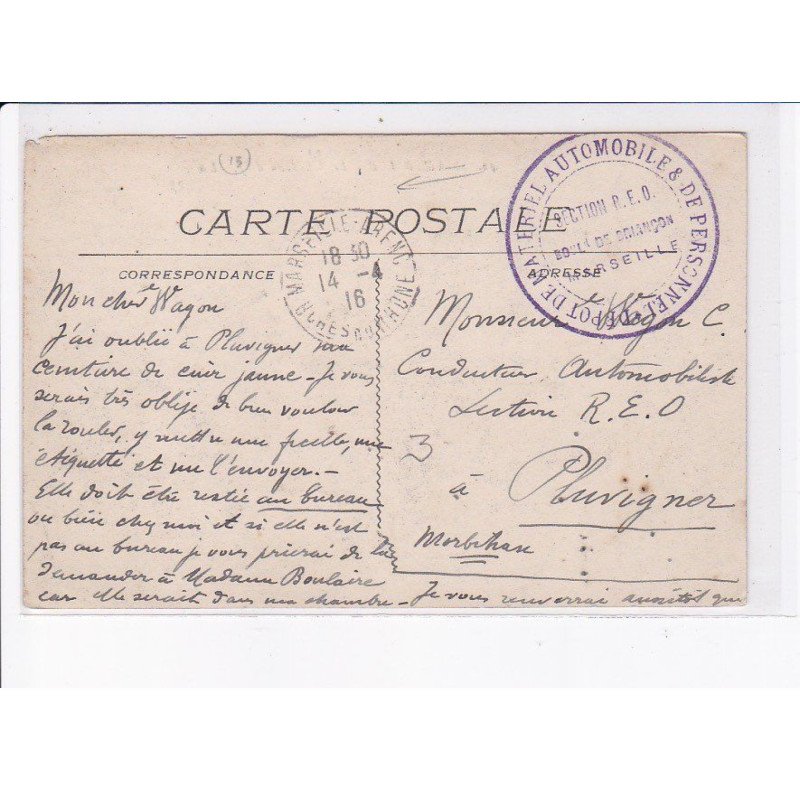 13
CARTE POSTALE
CORRESPONDANCE
ADRESSE
DEPOT DE MATERIEL AUTOMOBILE & DE PERSONNEL
SECTION R.E.O.
BOUL.d DE BRIANÇON
MARSEILLE
MARSEILLE-ARENC
18 30
14 -4
16
BCHES DU RHONE
Mon cher Wagon
J'ai oublié à Pluvigner ma
ceinture de cuir jaune - Je vous
serais très obligé de bien vouloir
la rouler, y mettre une ficelle, une
étiquette et me l'envoyer. -
Elle doit être restée au bureau
ou bien chez moi et si elle n'est
pas au bureau je vous prierai de la
demander à Madame Boulaire
car elle serait dans ma chambre - Je vous renverrai aussitôt que
Monsieur Wagon C.
Conducteur Automobiliste
Section R.E.O
3
à Pluvigner
Morbihan